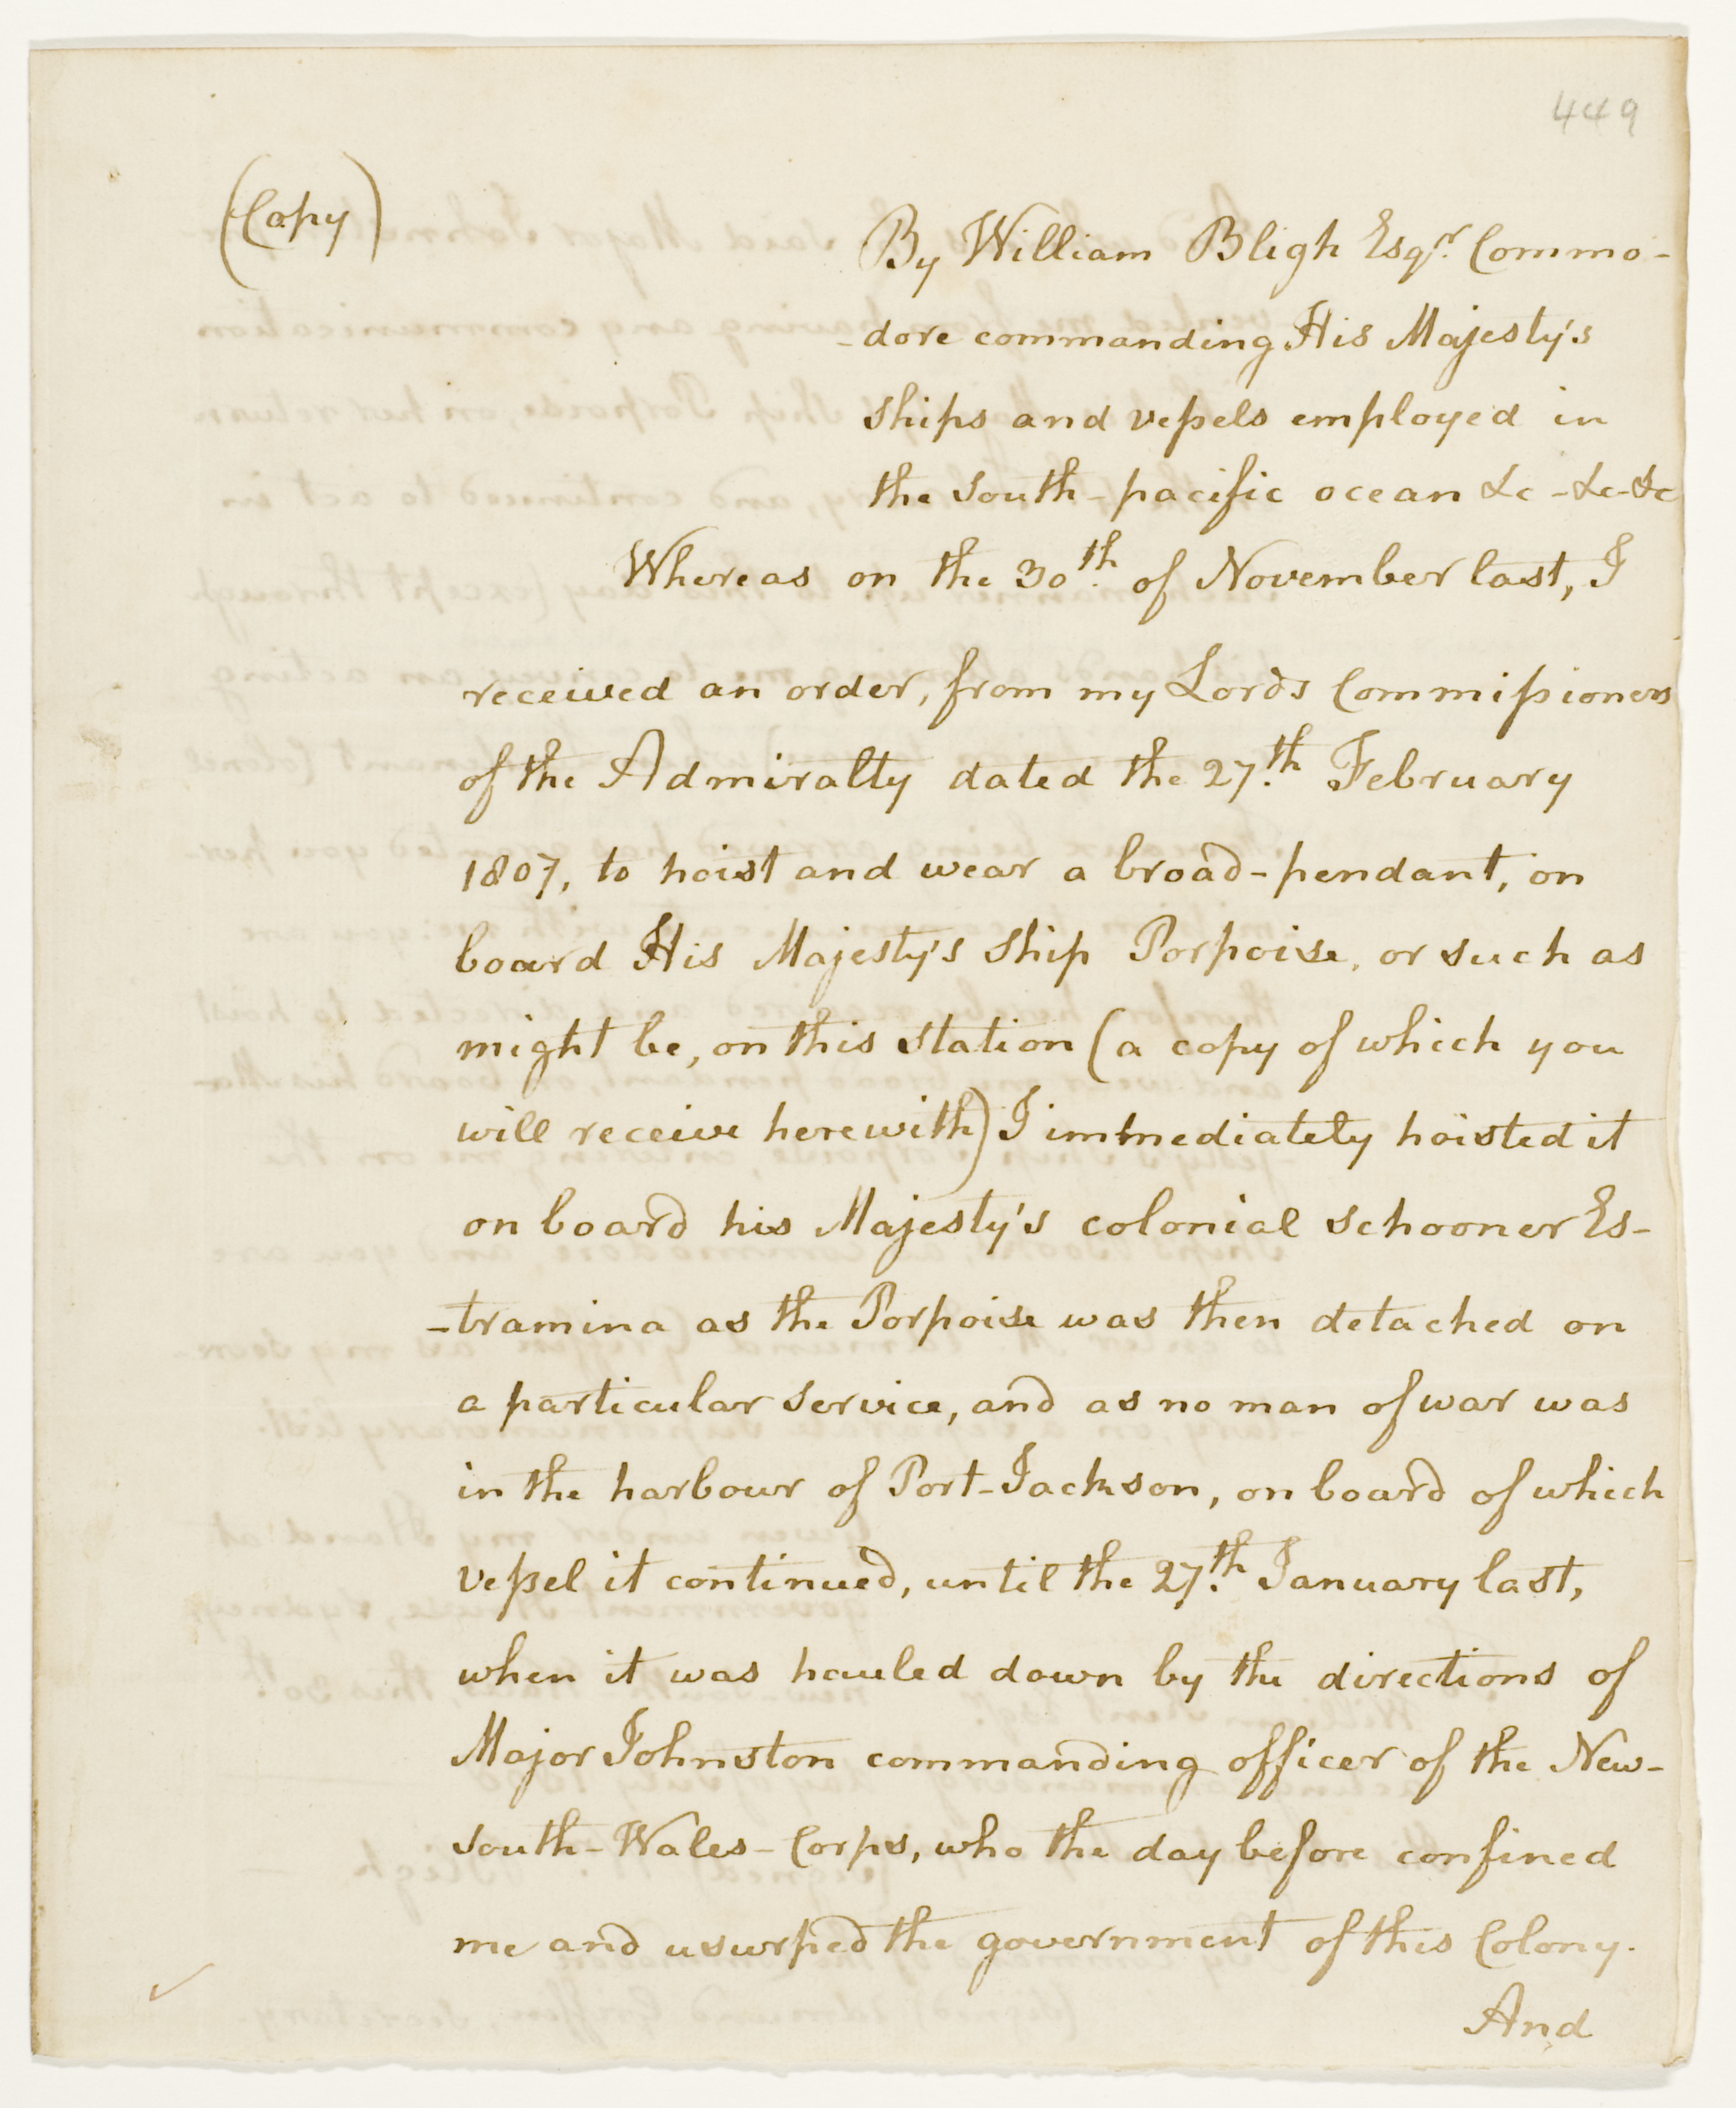 449
(Copy)
By William Bligh Esqr. Commo-
-dore commanding His Majesty's
Ships and veſsels employed in
the South-pacific ocean &c-&c-&c
Whereas on the 30th. of November last, I
received an order, from my Lords Commiſsioners
of the Admiralty dated the 27th. February
1807, to hoist and wear a broad-pendant, on
board His Majesty's Ship Porpoise, or such as
might be, on this station (a copy of which you
will receive herewith) I immediately hoisted it
on board his Majesty's colonial schooner Es-
-tramina as the Porpoise was then detached on
a particular service, and as no man of war was
in the harbour of Port-Jackson, on board of which
Veſsel it continued, until the 27th. January last,
when it was hauled down by the directions of
Major Johnston commanding officer of the New-
South-Wales-Corps, who the day before confined
me and usurped the government of this Colony.
And